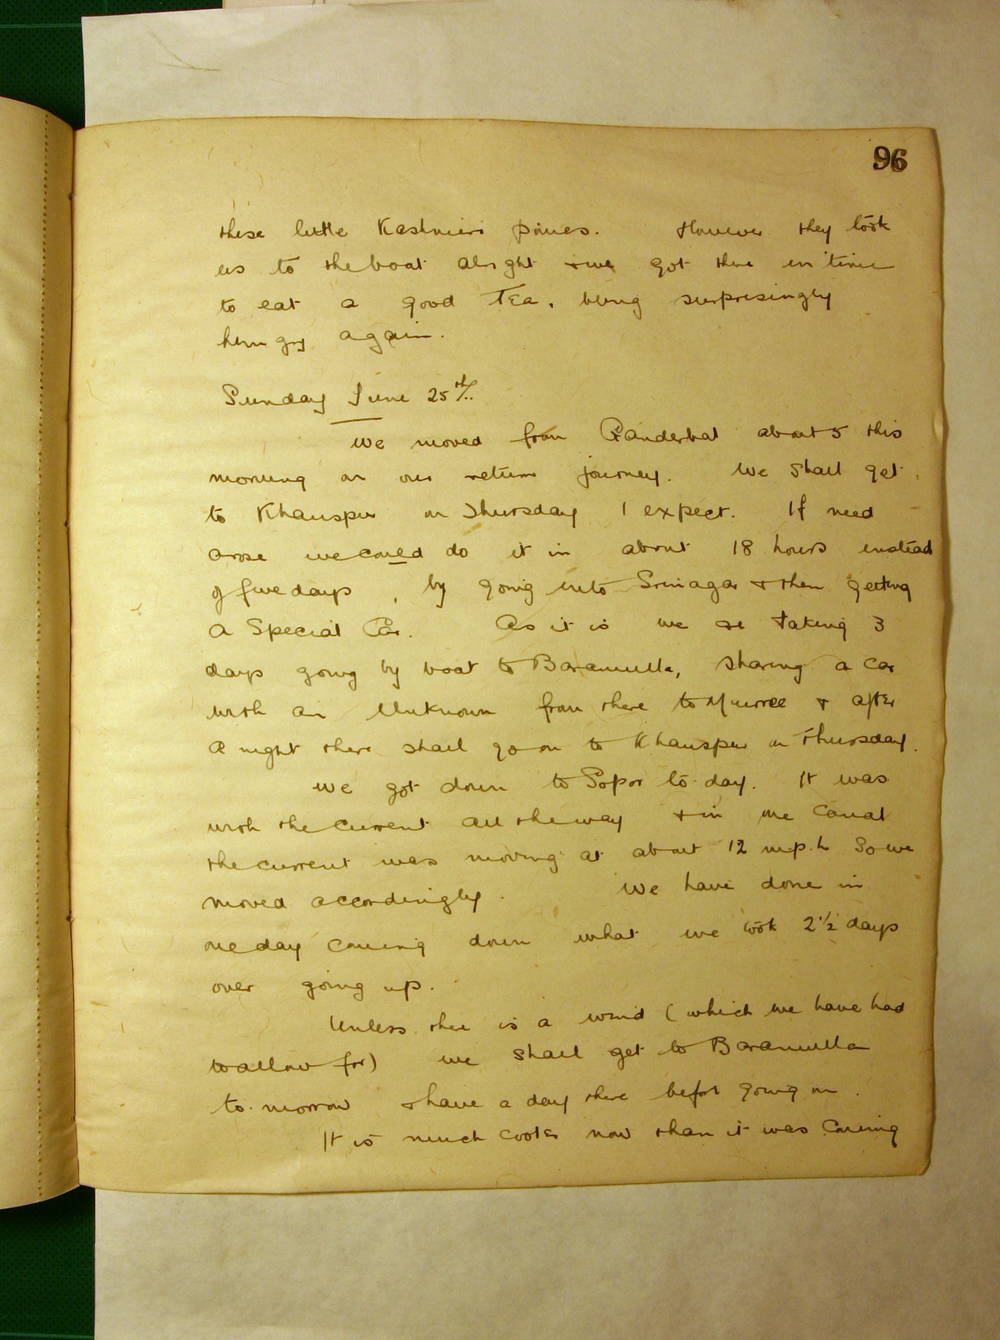 96
these little Kashmiri ponies. However they took
us to the boat alright & we got there in time
to eat a good Tea, being surprisingly
hungry again.
Sunday June 25th.
We moved from Ganderbal about 5 this
morning on our return journey. We shall get
to Khanspur on Thursday I expect. If need
arose we could do it in about 18 hours instead
of five days, by going into Srinagar & then getting
a Special Car. As it is we are taking 3
days going by boat to Baramulla, sharing a car
with an Unknown from there to Murree & after
a night there shall go on to Khanspur on Thursday.
We got down to Sopor to-day. It was
with the current all the way & in one Canal
the current was moving at about 12 m.p.h so we
moved accordingly. We have done in
one day coming down what we took 2½ days
over going up.
Unless there is a wind (which we have had
to allow for) we shall get to Baramulla
to-morrow & have a day there before going on.
It is much cooler now than it was coming